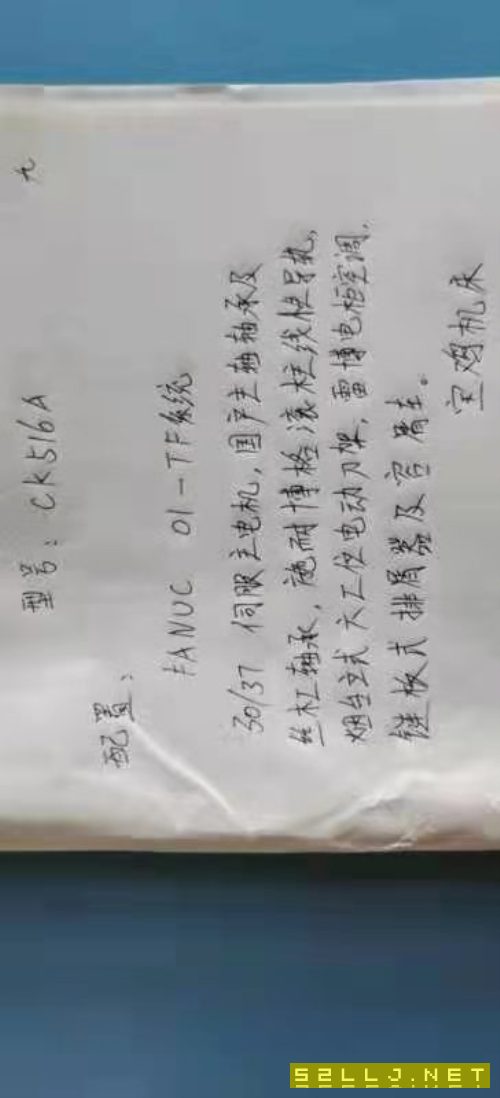 九
型号：CK516A
配置：
FANUC 01-TF系统
30/37 伺服主电机，国产主轴轴承及
丝杠轴承，施耐博格滚柱线性导轨，
烟台立式六工位电动刀架，雷博电柜空调，
链板式排屑器及容屑车。
宝鸡机床
52LLJ.NET